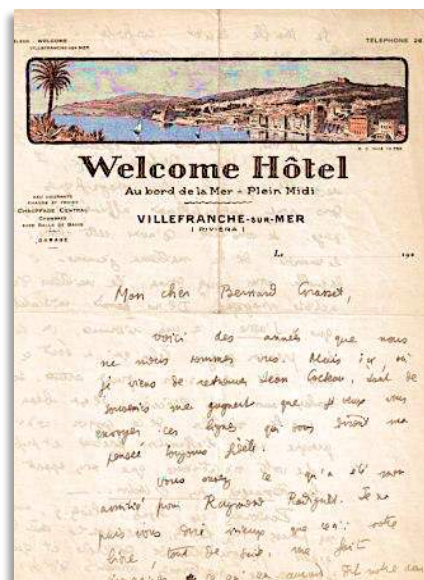 WELCOME
VILLEFRANCHE-SUR-MER
TELEPHONE 26
Welcome Hôtel
Au bord de la Mer - Plein Midi
VILLEFRANCHE-SUR-MER
( RIVIÉRA )
EAU COURANTE
CHAUDE ET FROIDE
CHAUFFAGE CENTRAL
CHAMBRES
AVEC SALLE DE BAINS
GARAGE
Le 192
Mon cher Bernard Grasset,
voici des années que nous
ne nous sommes vus. Mais ici, où
je viens de retrouver Jean Cocteau, tant de
souvenirs me gagnent que je veux vous
envoyer ces lignes qui vous diront ma
pensée toujours fidèle.
Vous savez ce qu'a été mon
amitié pour Raymond Radiguet. Je ne
puis vous dire mieux que ceci: votre
livre, tout de suite, me fait